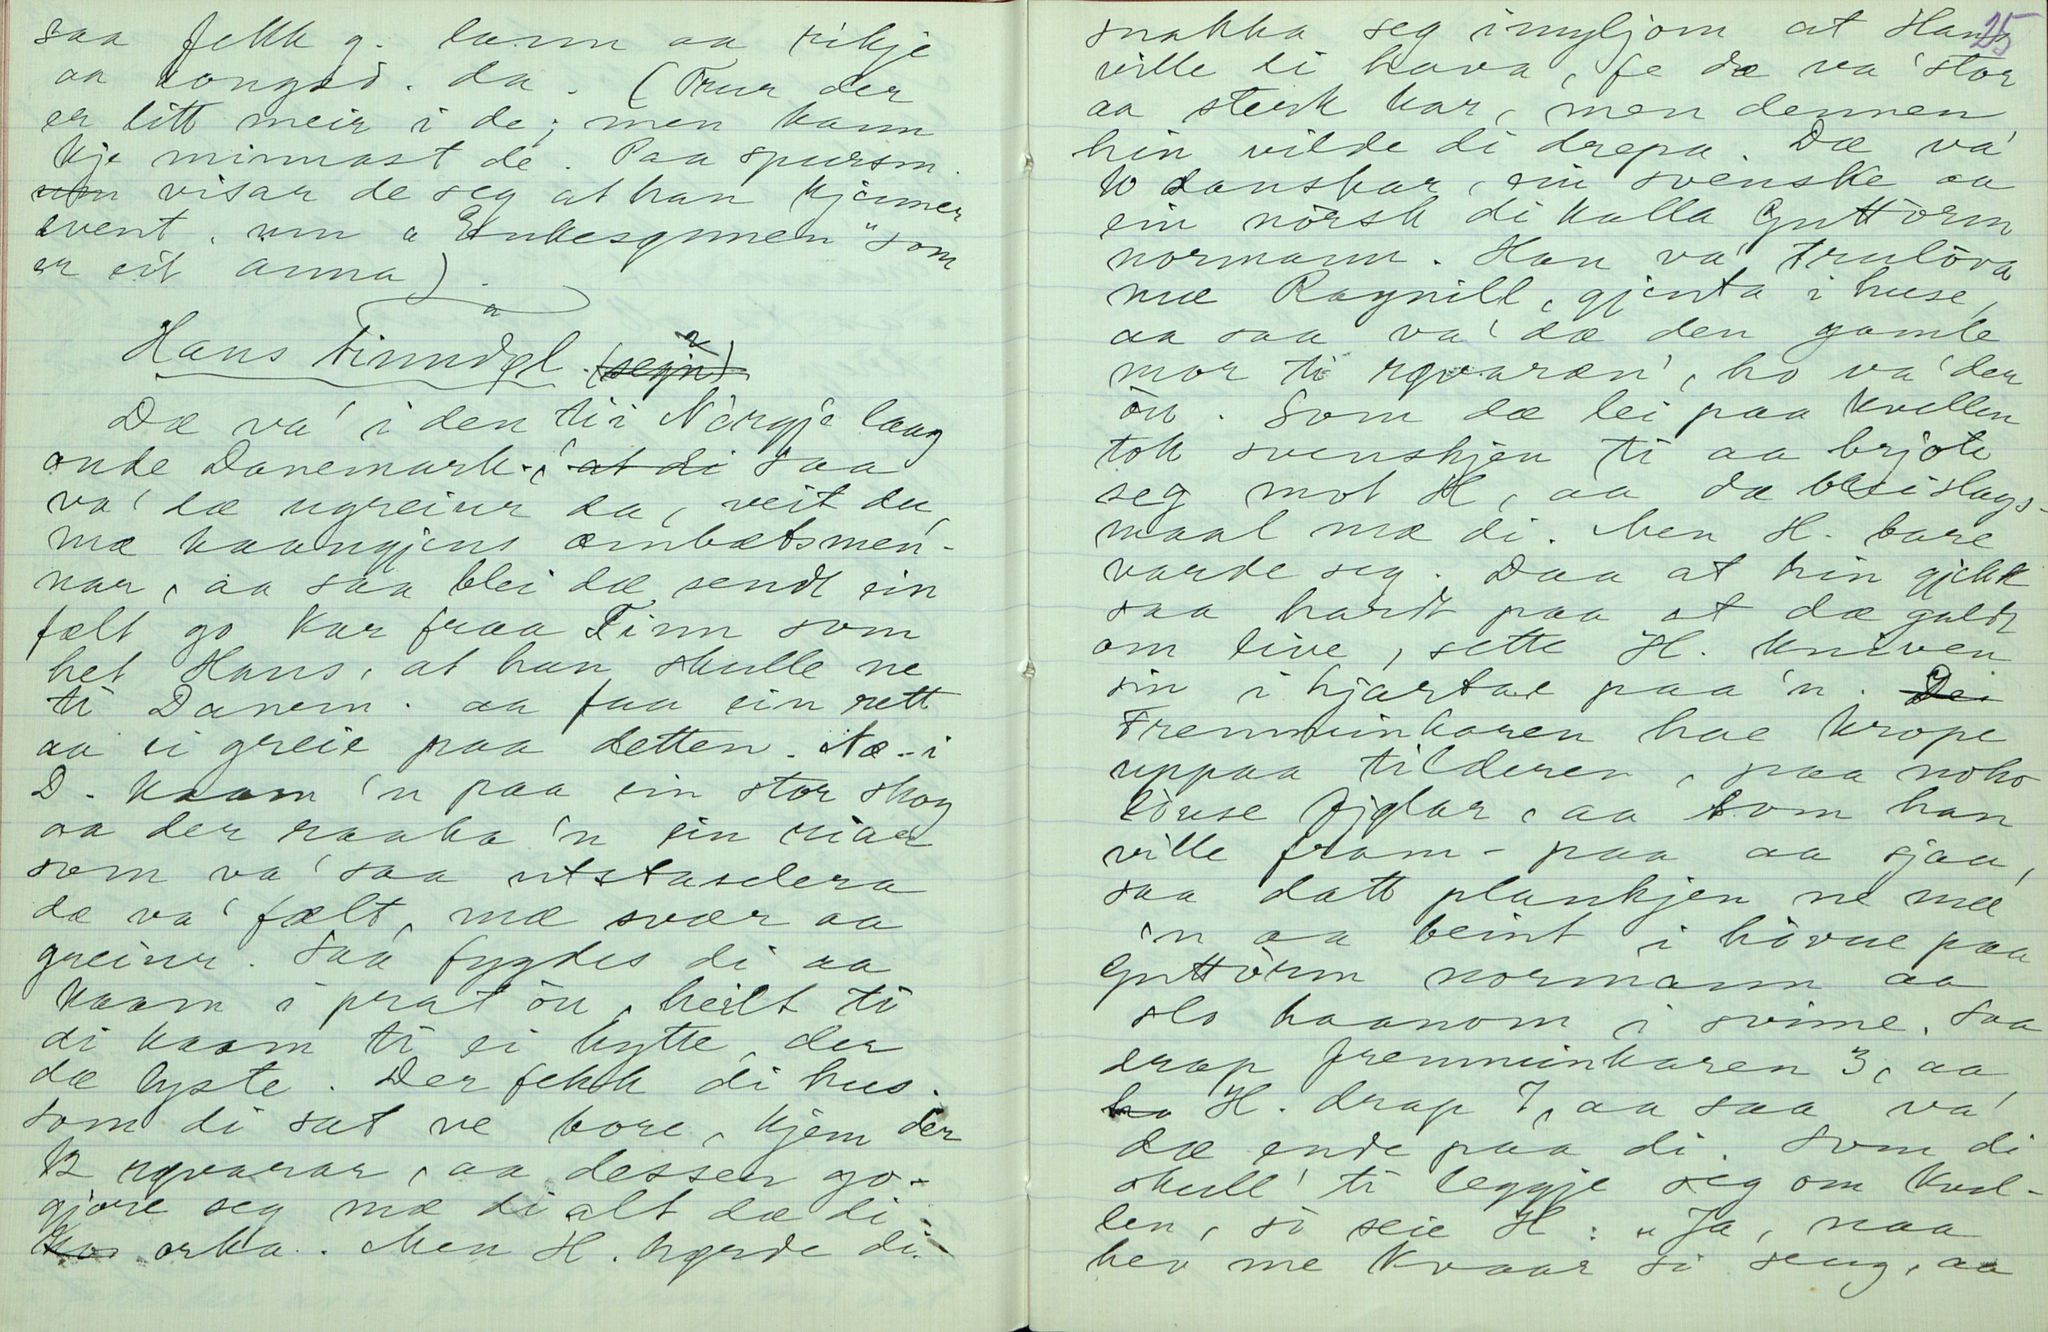 saa fekk g. lann aa rikje
aa kongsd. da. (Trur der
er litt meir i de; men kann
kje minnast de. Paa spursm.
um visar de seg at han kjemer
event. um „Enkesønnen" som
er eit anna).
Hans Finndøl. (segn)
Dæ va' i den tii Nörgje laag
onde Danemark, at di saa
va' dæ ugreiur da, veit du,
mæ kaangjens æmbætsmen-
nar, aa saa blei dæ sendt ein
fælt go kar fraa Finn som
het Hans, at han skulle ne
ti Danem. aa faa ein rett
aa ei greie paa detten. Næ - i
D. kaam 'n paa ein stor skog
aa der raaka 'n ein riar
som va' saa utstaselera
dæ va' fælt, mæ svær aa
greiur. Saa fygdes di aa
kaam i prat ôu, heilt ti
di kaam ti ei hytte, der
dæ lyste. Der fekk di hus.
Som di sat ve bore, kjem der
12 røvarar, aa dessen go-
gjore seg mæ di alt dæ di
orka. Men H. høyrde di
25
snakka seg imyljom at Hans
ville di hava, fe dæ va' stor
aa sterk kar, men dennen
hin vilde di drepa. Dæ va'
10 danskar, ein svenske aa
ein nörsk di kalla Guttörm
normann. Han va' trulôva
mæ Ragnill, gjenta i huse,
aa saa va' dæ den gamle
mor ti røvaræn', ho va' der
ôu. Som dæ lei paa kvellen
tok svenskjen ti aa brjote
seg mot H, aa dæ blei slags-
maal mæ di. Men H. bare
varde seg. Daa at hin gjekk
saa hardt paa at dæ galdt
om live, sette H. kniven
sin i hjartae paa 'n. Dei
Fremminkaren hae krope
uppaa tilderen, paa noko
löuse fjølar, aa som han
ville fram- paa aa sjaa,
saa datt plankjen ne mæ
'n aa beint i hövue paa
Guttörm normann aa
slo haanom i svime. Saa
drap fremminkaren 3, aa
ho H. drap 7, aa saa va'
dæ ende paa di. Som di
skull' ti leggje seg om kvel-
len, so seie H: „Ja, naa
hev me kvaar si seng, aa